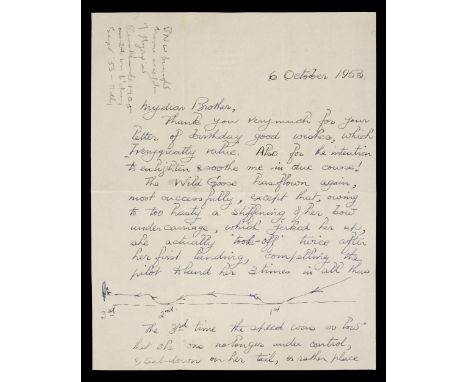 6 October 1953.
My dear Brother,
Thank you very much for your
letter of birthday good wishes, which
I very greatly value. Also for the intention
to enlighten & soothe me in due course!
The Wild Goose has flown again,
most successfully, except that, owing
to too hasty a stiffening of her bow
undercarriage, which jerked her up,
she actually 'took-off' twice after
her first landing, compelling the
pilot to land her 3 times in all thus
3rd 2nd 1st
The 3rd time the speed was so low
that she was no longer under control,
& sat-down on her tail, or rather place